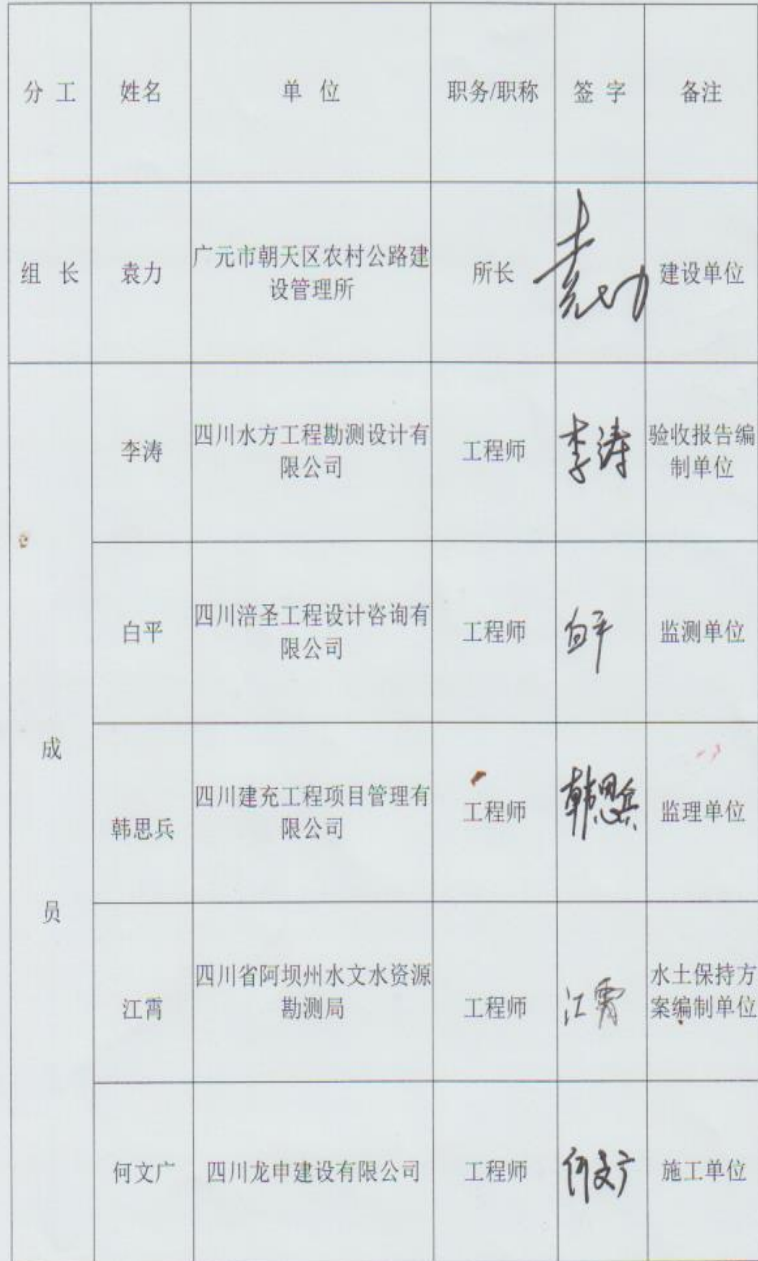 分 工 姓名 单 位 职务/职称 签 字 备注
组 长 袁力 广元市朝天区农村公路建 所长 袁力 建设单位
设管理所
李涛 四川水方工程勘测设计有 工程师 李涛 验收报告编
限公司 制单位
白平 四川涪圣工程设计咨询有 工程师 白平 监测单位
限公司
成
韩思兵 四川建充工程项目管理有 工程师 韩思兵 监理单位
限公司
员
江霄 四川省阿坝州水文水资源 工程师 江霄 水土保持方
勘测局 案编制单位
何文广 四川龙申建设有限公司 工程师 何文广 施工单位